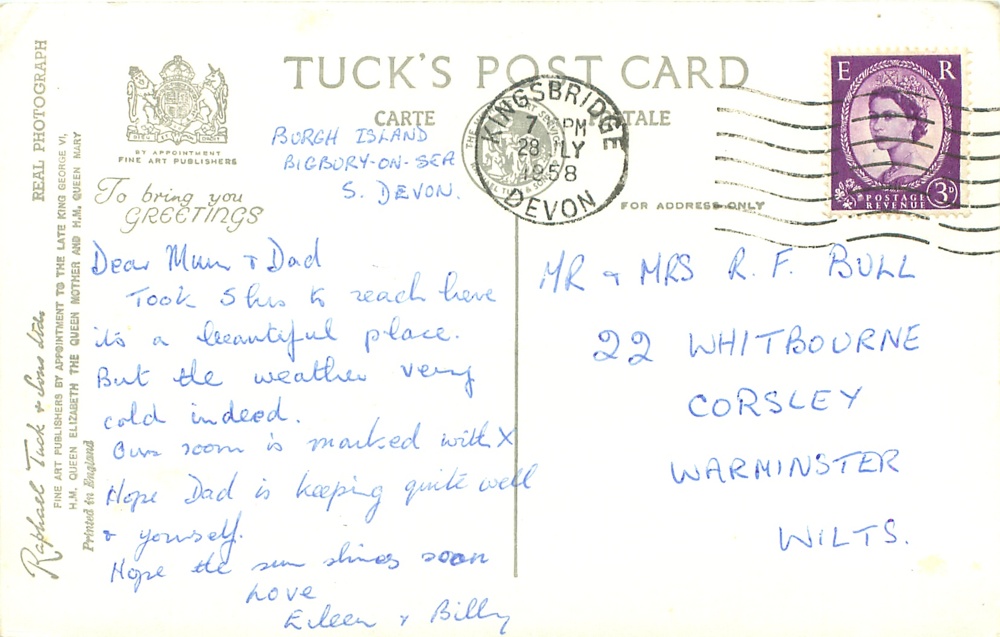 TUCK'S POST CARD
CARTE
TALE
BY APPOINTMENT
FINE ART PUBLISHERS
To bring you
GREETINGS
REAL PHOTOGRAPH
Raphael Tuck & Sons Ltd
FINE ART PUBLISHERS BY APPOINTMENT TO THE LATE KING GEORGE VI,
H.M. QUEEN ELIZABETH THE QUEEN MOTHER AND H.M. QUEEN MARY
Printed in England
BURGH ISLAND
BIGBURY-ON-SEA
S. DEVON.
Dear Mum & Dad
Took 5 hrs to reach here
it's a beautiful place.
But the weather very
cold indeed.
Our room is marked with X
Hope Dad is keeping quite well
& yourself.
Hope the sun shines soon
Love
Eileen & Billy
KINGSBRIDGE
7 PM
28 LY
1958
DEVON
E R
POSTAGE
REVENUE
3D
FOR ADDRESS ONLY
MR & MRS R. F. BULL
22 WHITBOURNE
CORSLEY
WARMINSTER
WILTS.